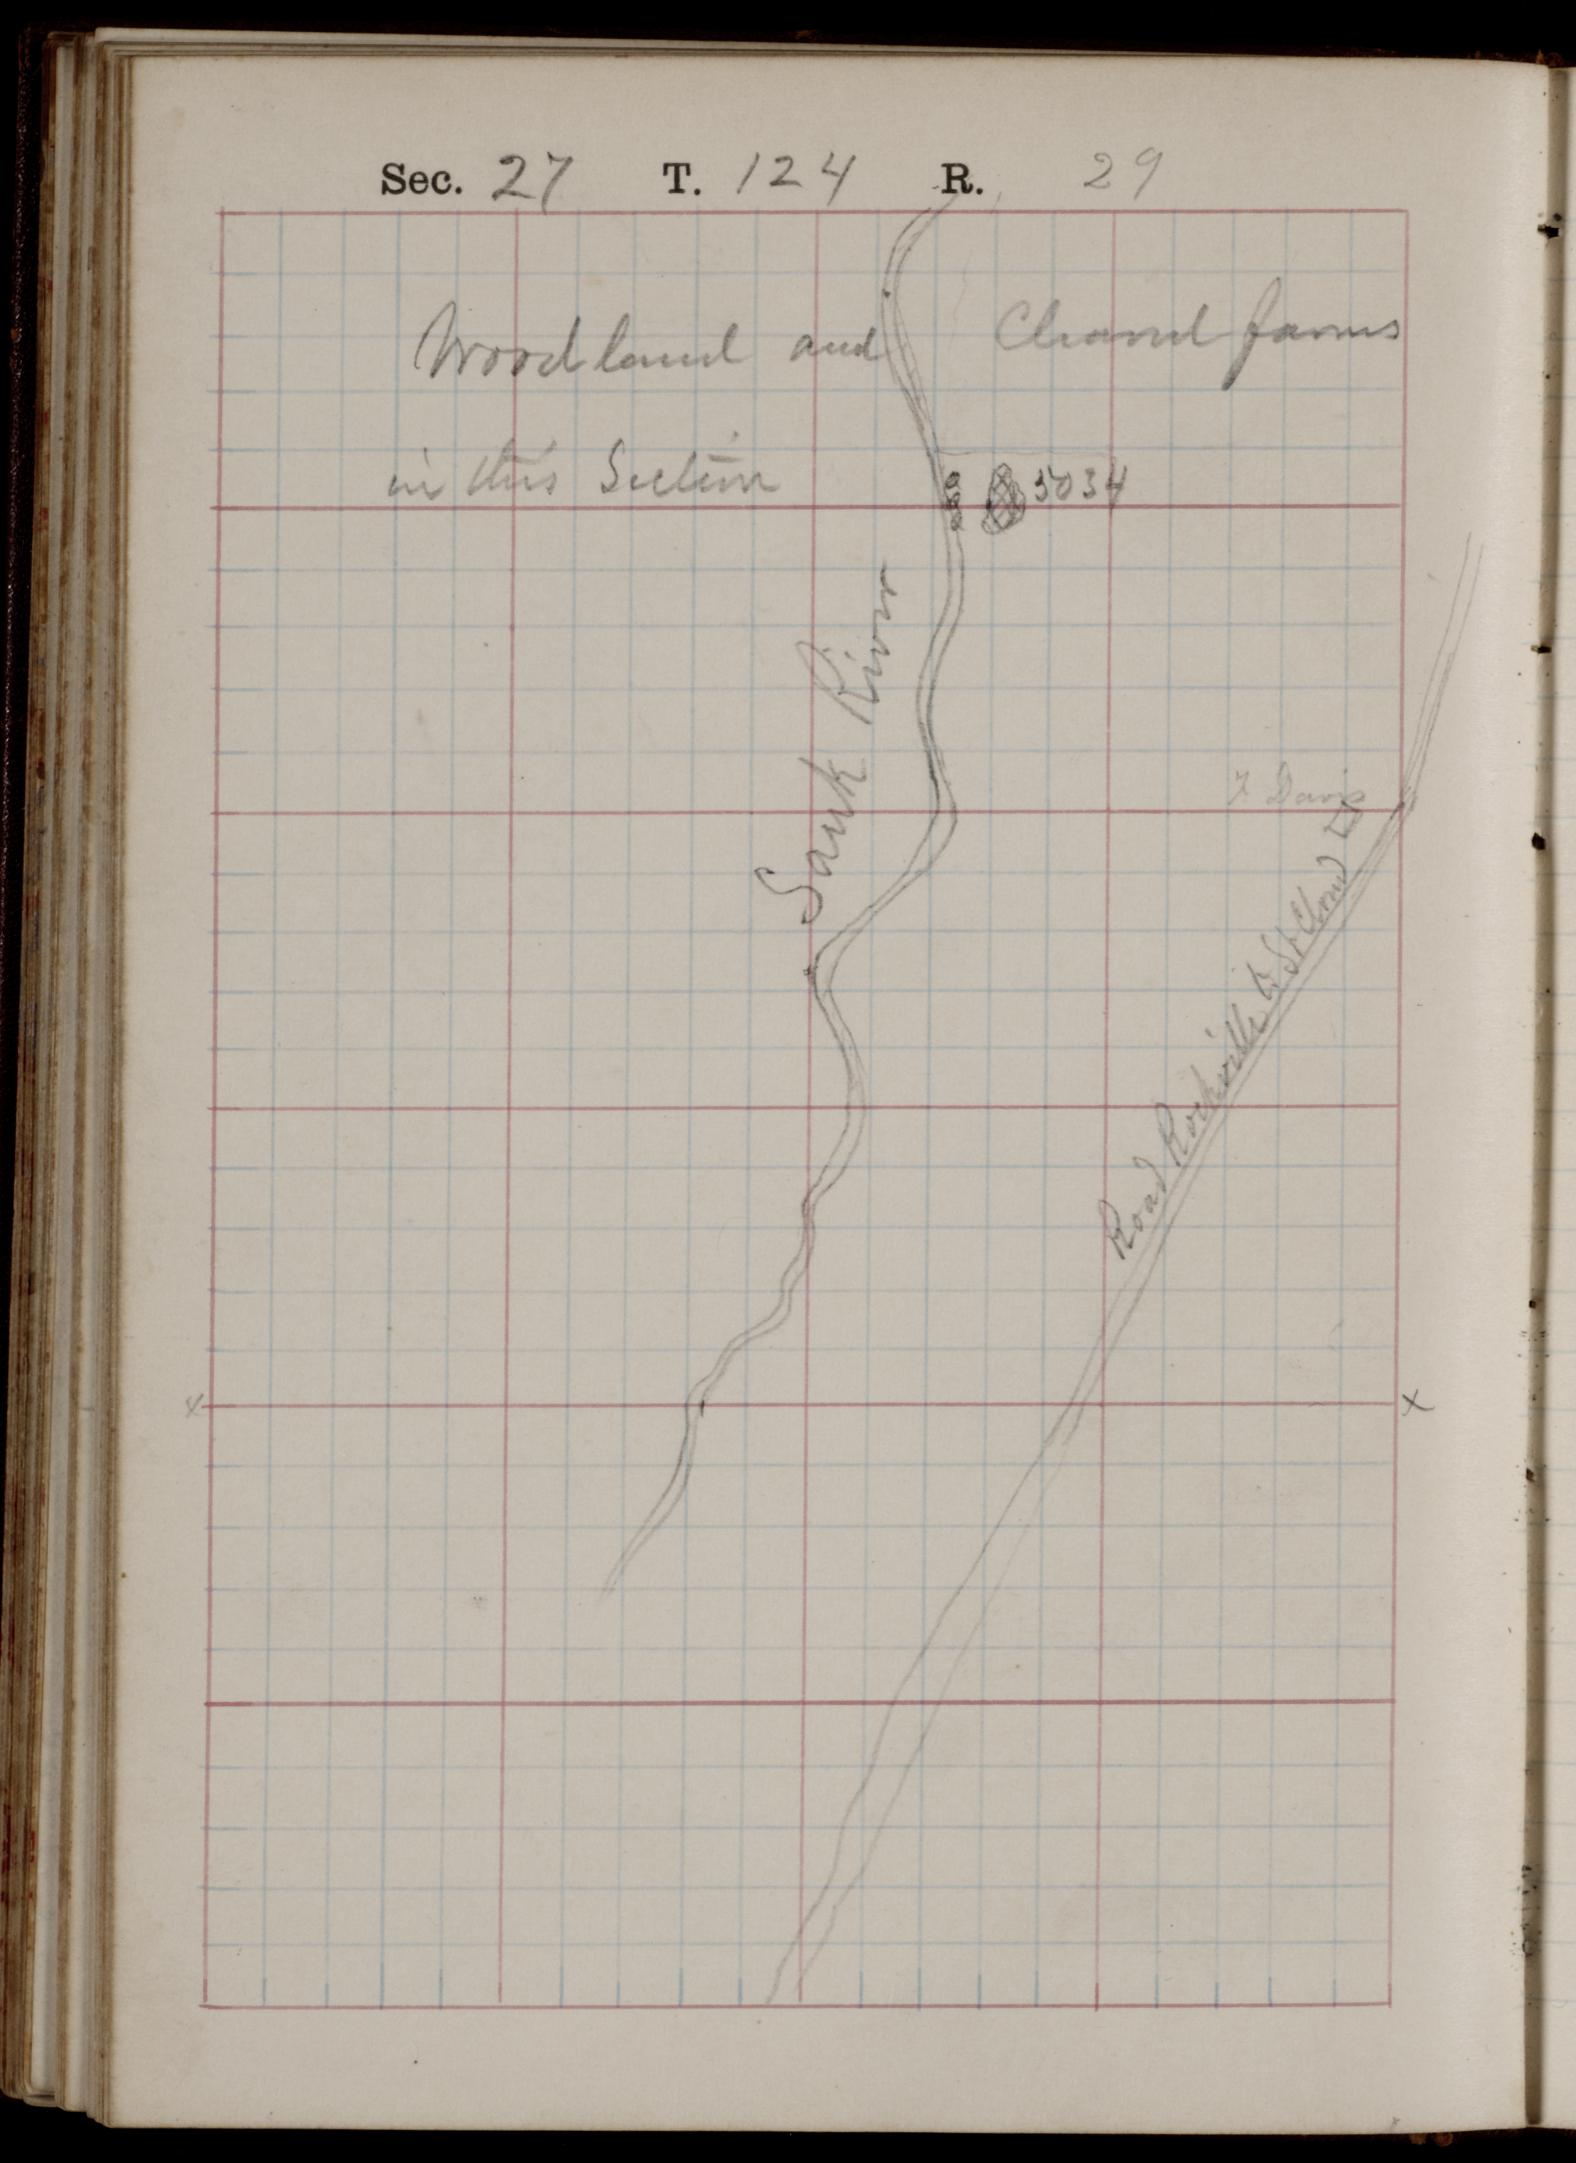 Sec. 27 T. 124 R. 29
Woodland and Cleared farms
in this Section
5034
Sauk River
F Davis
Road Rockville to St Cloud
x x